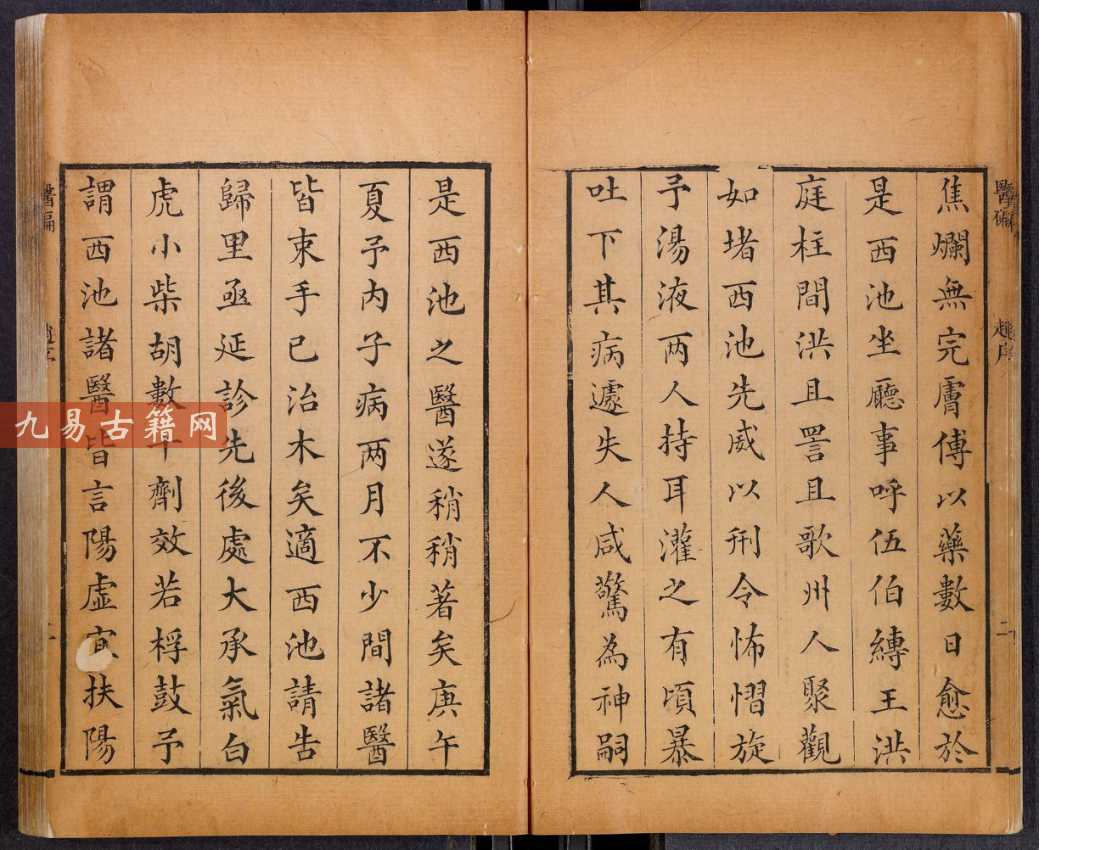 焦爛無完膚傅以藥數日愈於
是西池坐廳事呼伍伯縳王洪
庭柱間洪且詈且歌州人聚觀
如堵西池先威以刑令怖慴旋
予湯液两人持耳灌之有頃暴
吐下其病遽失人咸驚為神嗣
是西池之醫遂稍稍著矣庚午
夏予内子病两月不少間諸醫
皆束手已治木矣適西池請告
歸里亟延診先後處大承氣白
虎小柴胡數十劑效若桴鼓予
謂西池諸醫皆言陽虛宜扶陽
醫碥
趙序
二
九易古籍网